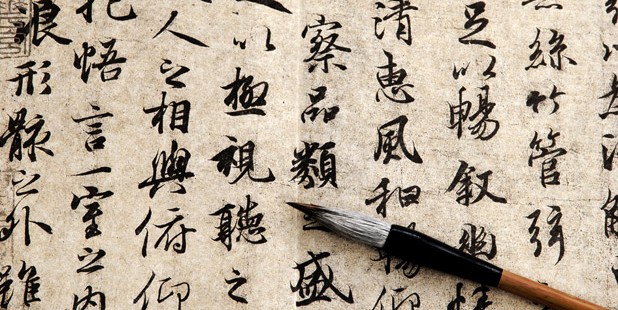 無絲竹管弦
足以暢叙幽情
清惠風和暢仰
察品類之盛
以極視聽之
人之相與俯仰
抱悟言一室之內
浪形骸之外雖